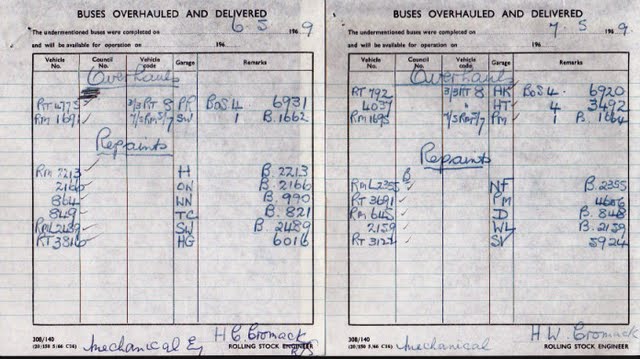 BUSES OVERHAULED AND DELIVERED
The undermentioned buses were completed on 6.5 196 9
and will be available for operation on 196
Vehicle No. Council No. Vehicle code Garage Remarks
Overhauls
RT 4775 ✓ 3/3RT 8 PR BoS 4 6931
RM 1691 ✓ 7/5RM5/7 SW 1 B.1662
Repaints
RM 2213 ✓ H B.2213
2166 ✓ ON B.2166
864 ✓ WN B.990
849 ✓ TC B.821
RML2489 ✓ SW B.2489
RT 3816 ✓ HG 6016
308/140
(20/150 5/66 C26) Mechanical Eng H C Cromack
ROLLING STOCK ENGINEER
BUSES OVERHAULED AND DELIVERED
The undermentioned buses were completed on 7.5 196 9.
and will be available for operation on 196
Vehicle No. Council No. Vehicle code Garage Remarks
Overhauls
RT 792 ✓ 3/3RT 8 HK BoS 4. 6920
4037 ✓ " HT 4 3492
RM 1695 ✓ 7/5RM5/7 PM 1 B.1664
Repaints
B
RML2355 ✓ NF B.2355
RT 3691 ✓ PM 4656
RM 645 ✓ D B.848
2159 ✓ WL B.2159
RT 3127 ✓ SV 5924
308/140
(20/150 5/66 C26) Mechanical H.W. Cromack
ROLLING STOCK ENGINEER